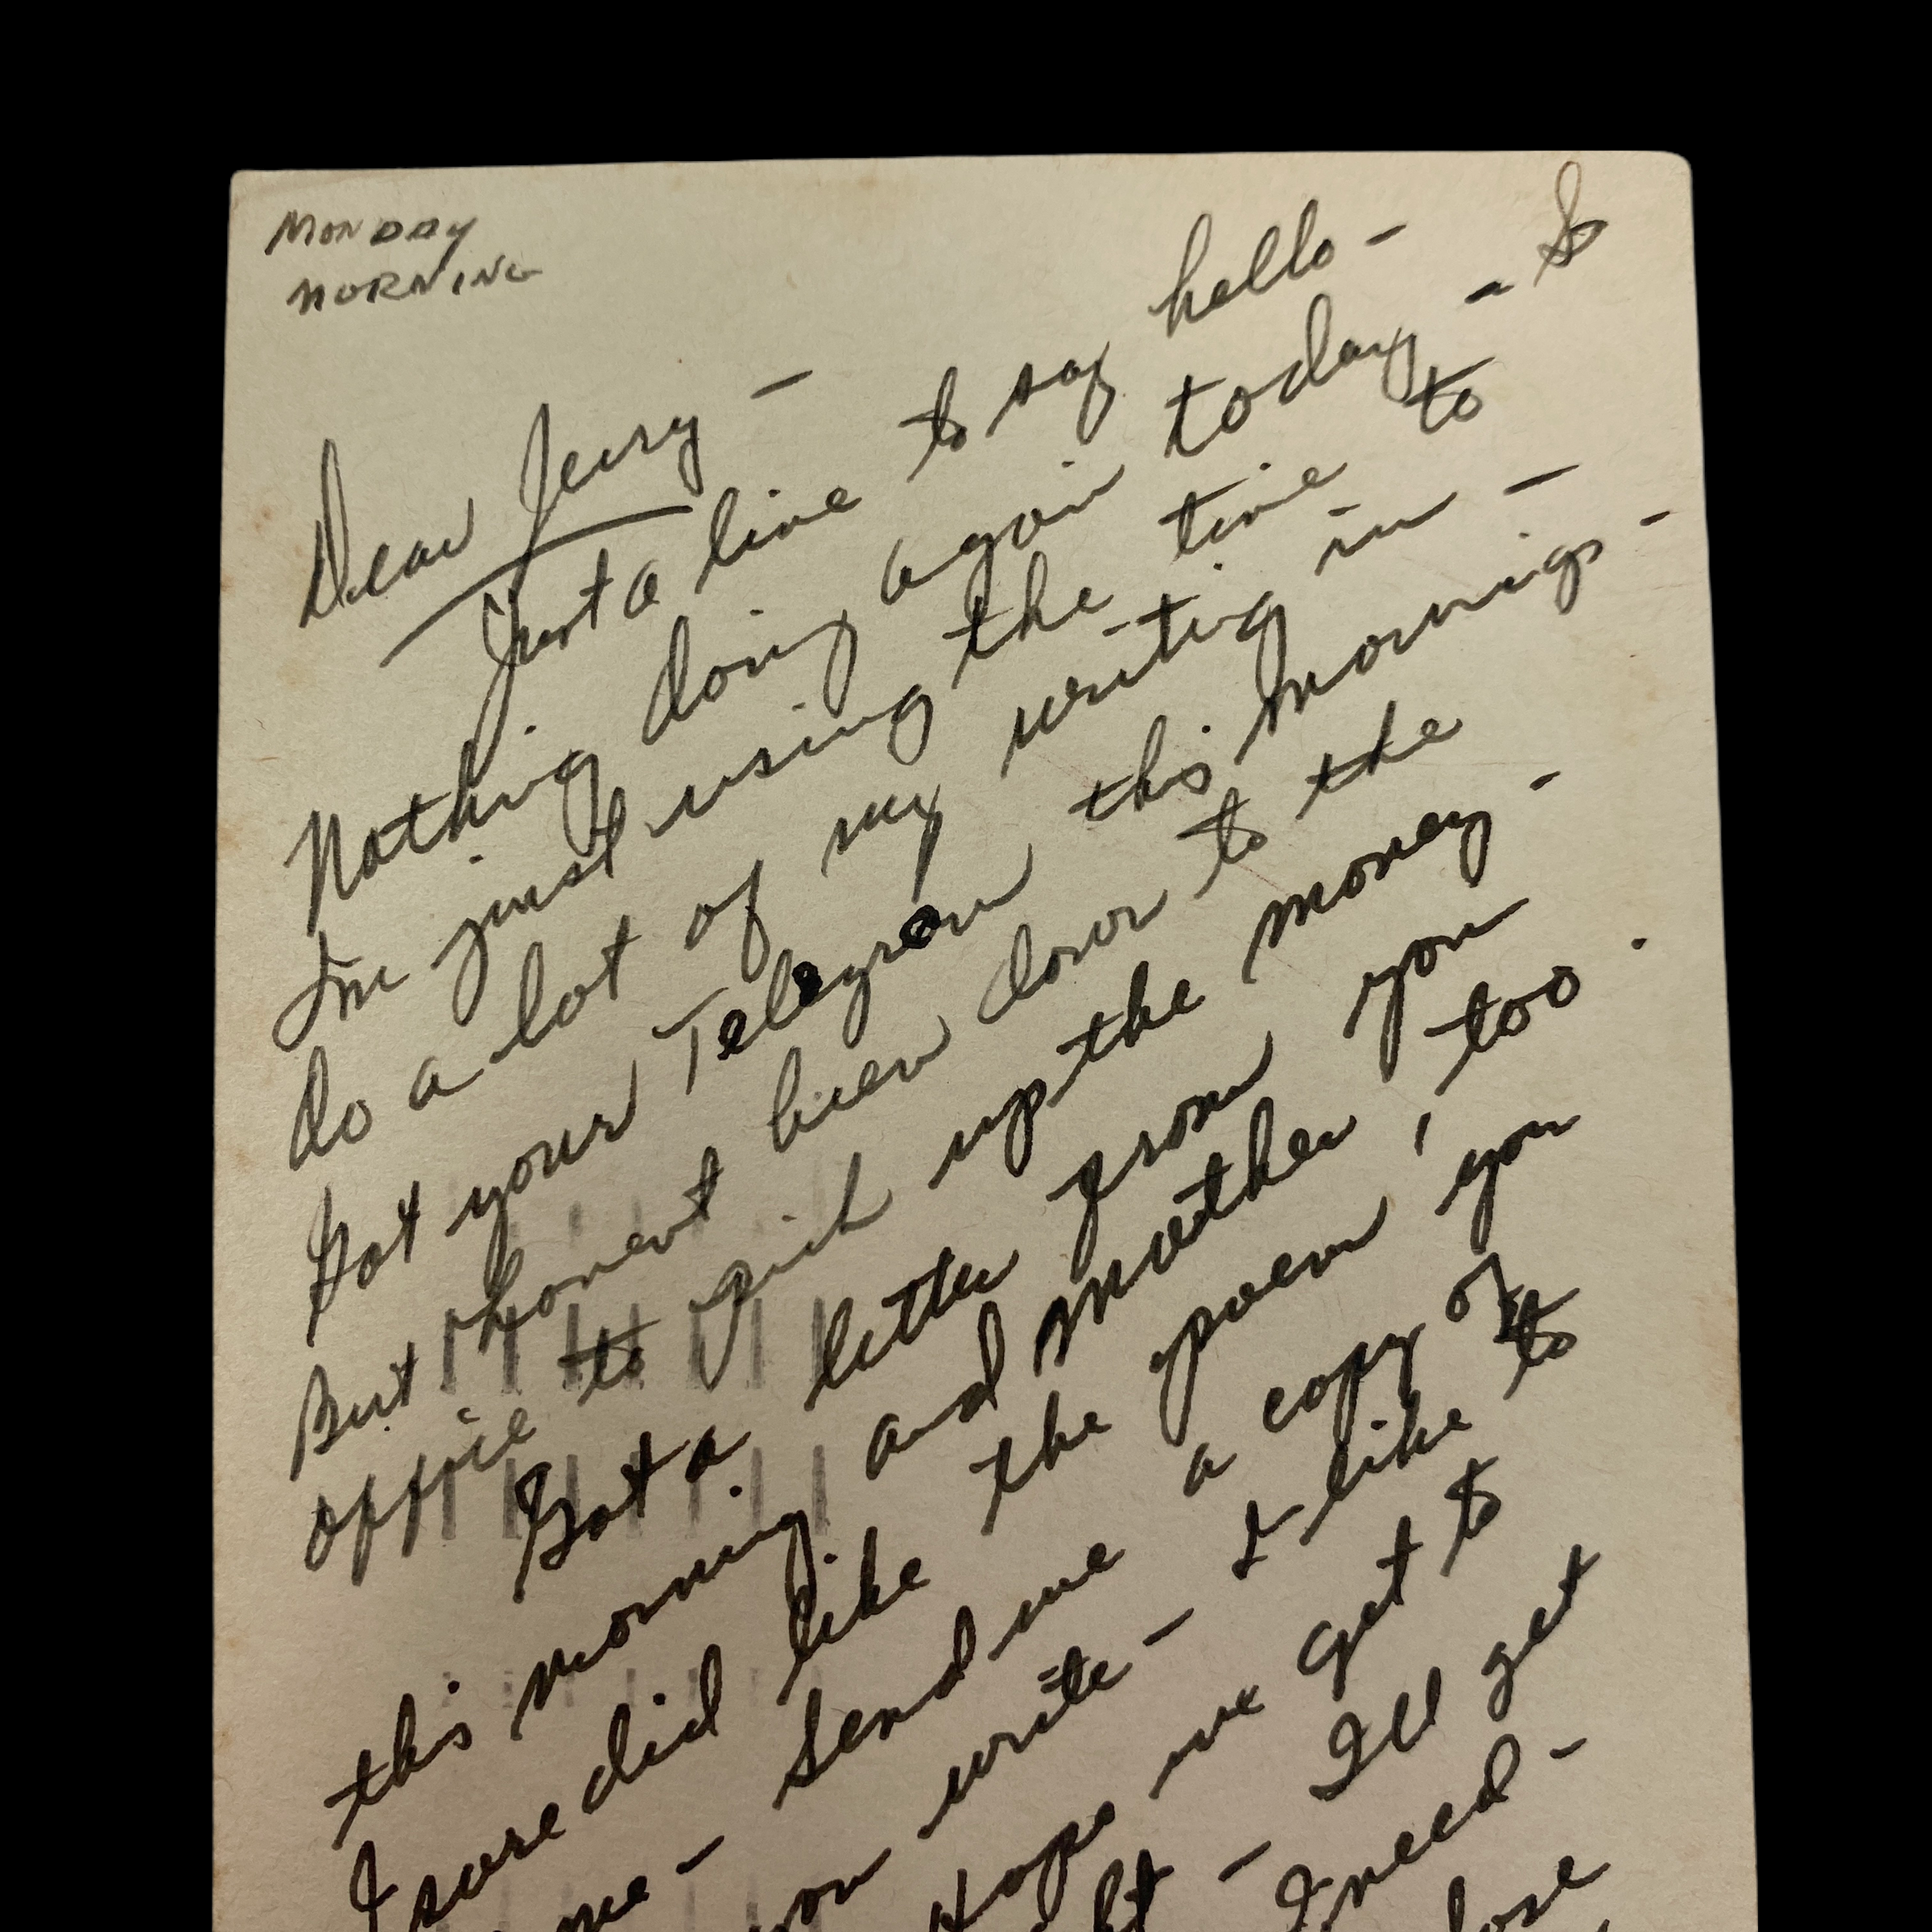 MONDAY
MORNING
Dear Jerry –
Just a line to say hello –
Nothing doing again today – So
Im just using the time to
do a lot of my writing in –
Got your Telegram this morning –
But havent been down to the
office to pick up the money –
Got a letter from you
this morning and mother, too.
I sure did like the poem you
me – Send me a copy of
you write – I like to
Hope we get to
– I'll get
I need –